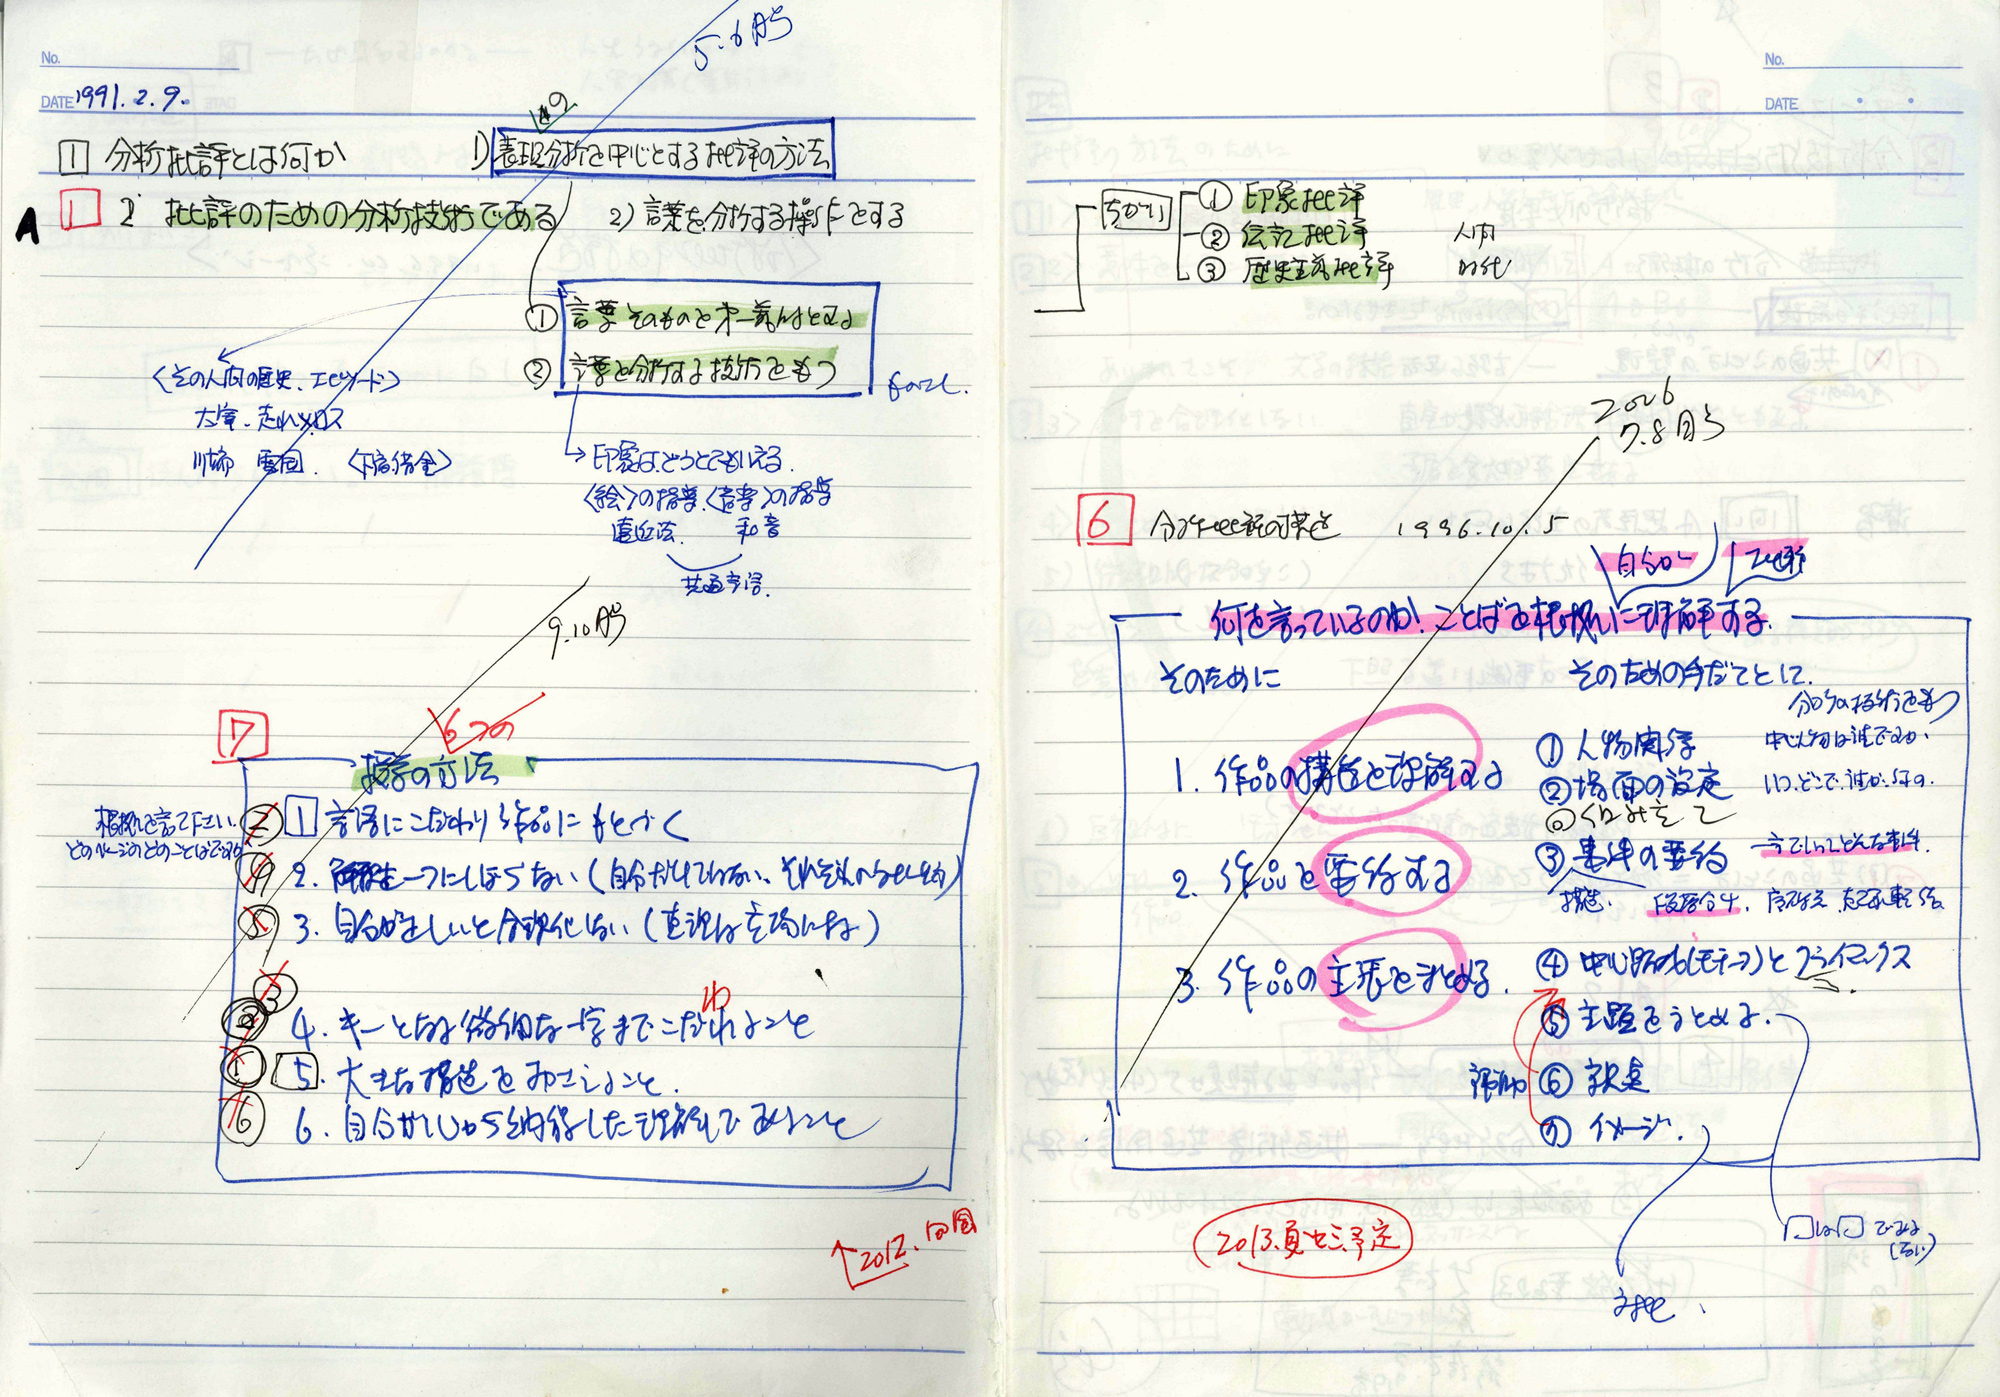 No.
DATE 1991.2.9.
5.6月号
1 分析批評とは何か
1) 表現分析を中心とする批評の方法
A 1 2 批評のための分析技術である
2) 言葉を分析する操作とする
① 言葉そのものを第一義とする
② 言葉を分析する技術をもつ
〈その人間の歴史、エピソード〉
太宰、走れメロス
川端 雪国 〈下宿借金〉
印象は、どうとでもいえる。
〈絵〉の指導、〈音楽〉の指導
遠近法 和音
共通言語
9.10月号
7
6つの
授業の方法
根拠を言って下さい。
どのページのどのことばですか
1 言語にこだわり作品にもとづく
2. 解釈を一つにしぼらない(自分だけではない、それぞれ
3. 自分が正しいと合理化しない(
4. キーとなる微細な一字までこだわること
わ
5. 大きな構造をおさえること。
6. 自分が心から納得した理解であること
2012.
No.
DATE
ちがい
① 印象批評
② 伝記批評 人間
③ 歴史主義批評 時代
2006
7.8月号
6 分析批評の 1996.10.5
自分が
何を言っているのか!ことばを根拠に理解する。
そのために
そのための手だてとして、
分析の技術をもつ
1. 作品の構造を理解する
2. 作品を要約する
3. 作品の主張をまとめる。
① 人物関係 中心人物は誰ですか
② 場面の設定 いつ、どこで、誰が、
◎ 組み立て
③ 事件の要約 一言でいってどんな事件
構造、 段落分け、 起承転結
④ 中心題材(モチーフ)とクライマックス
⑤ 主題をまとめる。
⑥
⑦ イメージ.
□は□である
2013.夏セミ予定